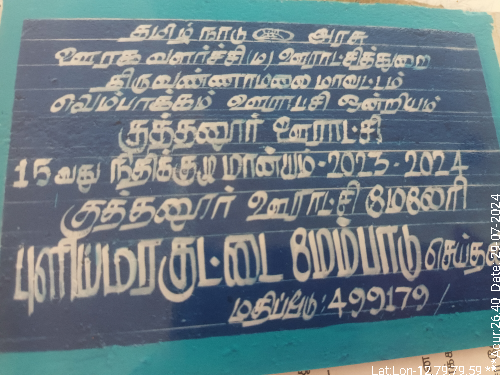 தமிழ் நாடு அரசு
ஊரக வளர்ச்சி(ம) ஊராட்சித்துறை
திருவண்ணாமலை மாவட்டம்
வெம்பாக்கம் ஊராட்சி ஒன்றியம்
குத்தனூர் ஊராட்சி
15 வது நிதிக்குழு மான்யம்-2023-2024
குத்தனூர் ஊராட்சி மேலேரி
புளியமரகுட்டை மேம்பாடு செய்தல்
மதிப்பீடு: 499179/
Lat Lon- 12.79,79.59 ***
cur 26.40 Date: 29-07-2024